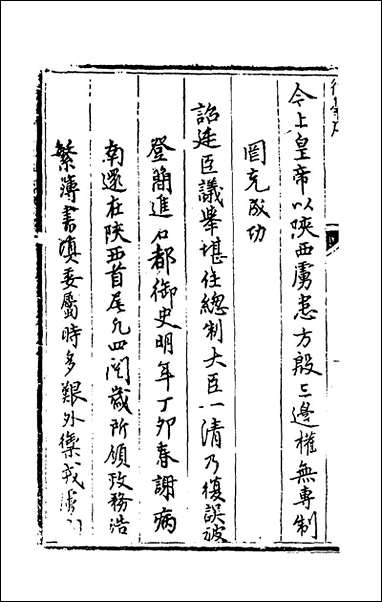 今上皇帝以陝西虜患方殷三邊權無專制
罔克成功
詔廷臣議舉堪任總制大臣一清乃復誤被
登簡進右都御史明年丁卯春謝病
南還在陝西首尾凡四閱歲所領政務浩
繁薄書填委屬時多艱外集戎